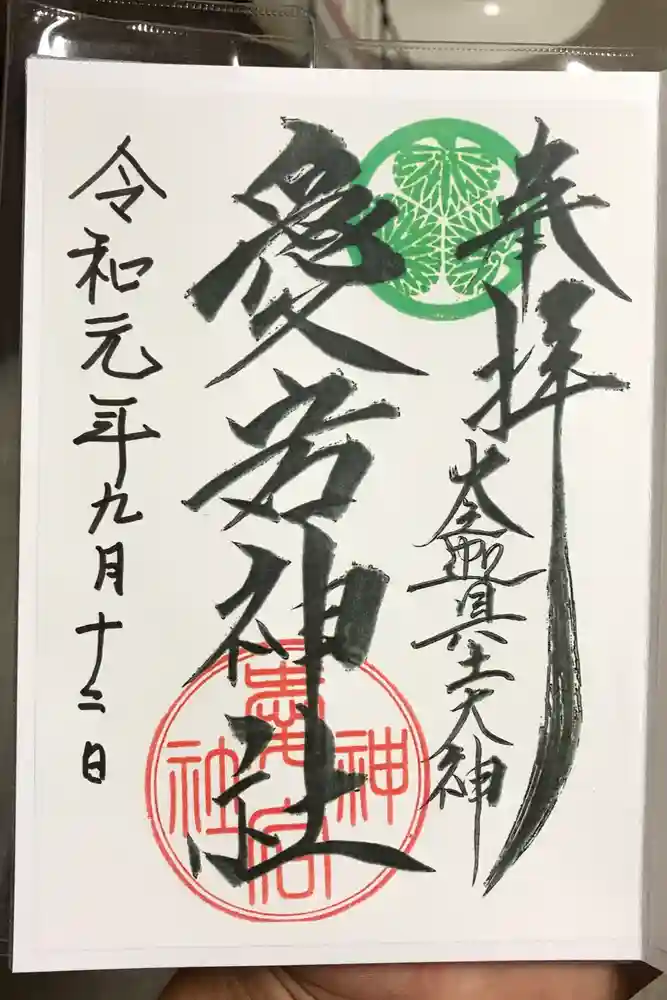 奉拝
火之迦具土大神
愛宕神社
愛宕神社
令和元年九月十二日